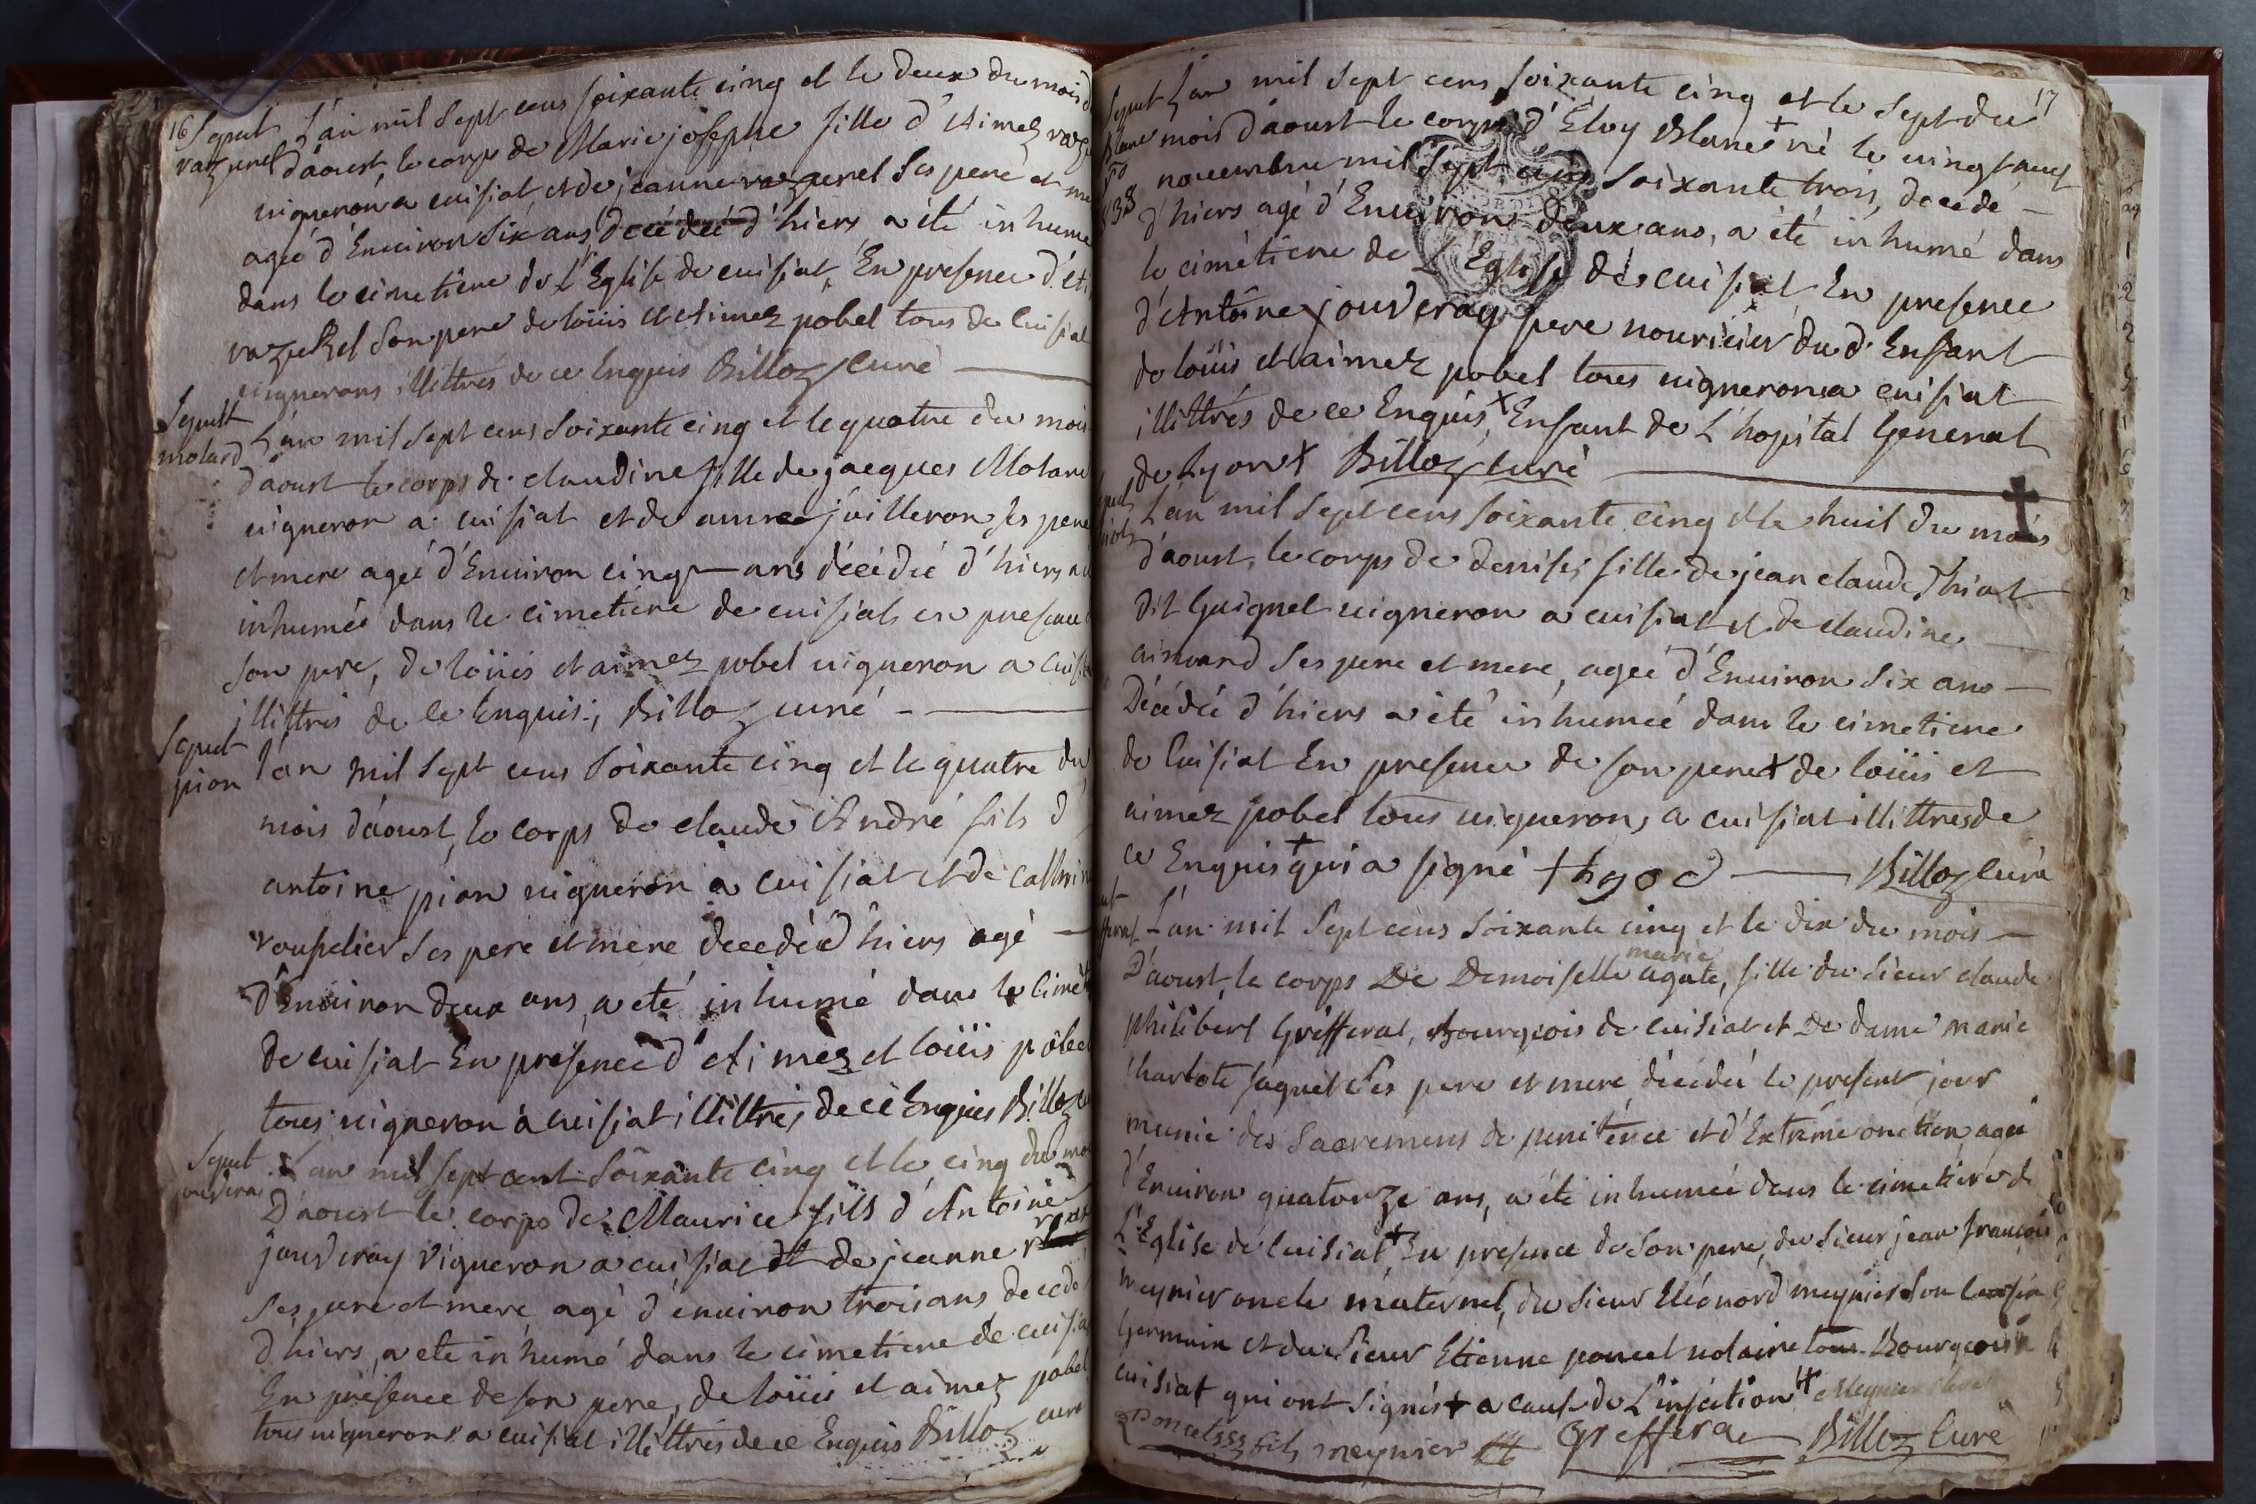 16
Sepult
vazurel
L'an mil sept cens soixante cinq et le deux du mois d
d'aoust, le corps de Marie josephe fille d'Aimez vazu
vigneron a cuisiat, et de jeanne vazurel ses pere et me
agéé d'Environ six ans, décédéé d'hiers a été inhumé
dans le cimetiere de L'Eglise de cuisiat, En presence d'Ai
vazurel son pere de loüis et Aimez pobel tous de Cuisiat
vignerons illittrés de ce Enquis Billoz Curé
Sepult
molard
L'an mil sept cens soixante cinq et le quatre du mois
d'aoust le corps de claudine fille de jacques Molard
vigneron a cuisiat et de anne juilleron ses pere
et mere agéé d'Environ cinq ans décédéé d'hiers a é
inhuméé dans le cimetiere de cuisiat en presence
son pere, de loüis et aimez pobel vigneron a cuisi
illittrés de ce Enquis; Billoz curé
Sepult
pion
l'an mil sept cens soixante cinq et le quatre du
mois d'aoust, le corps de claude André fils d'
antoine pion vigneron a cuisiat et de cathrin
roupelier ses pere et mere decedéé d'hiers agé
d'Environ deux ans, a eté inhumé dans le cimet
de cuisiat En presence d'Aimez et loüis pobel
tous vigneron à cuisiat illittrés de ce Enquis Billoz cu
Sepult
jouvray
L'an mil sept cent soixante cinq et le cinq du mo
D'aoust le corps de Maurice fils d'Antoine
jouveray vigneron a cuisiat et de jeanne
ses pere et mere agé d'environ trois ans decedé
d'hiers, a eté inhumé dans le cimetiere de cuisia
En présence de son pere, de loüis et aimez pobel
tous vignerons a cuisiat illittrés de ce Enquis Billoz curé
17
Sepult
Blanc
L'an mil sept cens soixante cinq et le sept du
mois d'aoust le corps d'Eloy Blanc + né le vingt neuf
novembre mil sept cens soixante trois, decedé
d'hiers agé d'Environ deux ans, a été inhumé dans
le cimétiere de L'Eglise de cuisiat En presence
d'Antoine jouveray pere nouricier du d. Enfant
de loüis et aimez pobel tous vignerons a cuisiat
illittrés de ce Enquis, + Enfant de L'hopital General
de Lyon + Billoz curé
L'an mil sept cens soixante cinq et le huit du mois
d'aoust, le corps de denise, fille de jean claude Thiot
dit Guignet vigneron a cuisiat et de claudine
aimard ses pere et mere, agéé d'Environ six ans
Décédéé d'hiers a été inhuméé dans le cimetiere
de Cuisiat En presence de son pere + de loüis et
aimez pobel tous vignerons a cuisiat illittres de
ce Enquis + qui a signé Billoz Curé
L'an mil sept cens soixante cinq et le dix du mois
D'aoust, le corps De Demoiselle marie agate, fille du sieur claude
philibert Grefferat, Bourgeois de cuisiat et De dame marie
charlote saquet ses pere et mere décédéé le present jour
munie des sacremens de penitence et d'Extrême onction, agéé
d'Environ quatorze ans, a été inhuméé dans le cimetiere de
L'Eglise de Cuisiat, + En presence de son pere, du sieur jean françois
meynier oncle maternel, du sieur Eléonord meynier son Cousin
Germain et du sieur Etienne poncet notaire tous Bourgeois à
cuisiat qui ont signés + a cause de L'infection
poncet fils meynier Grefferat Billoz Curé